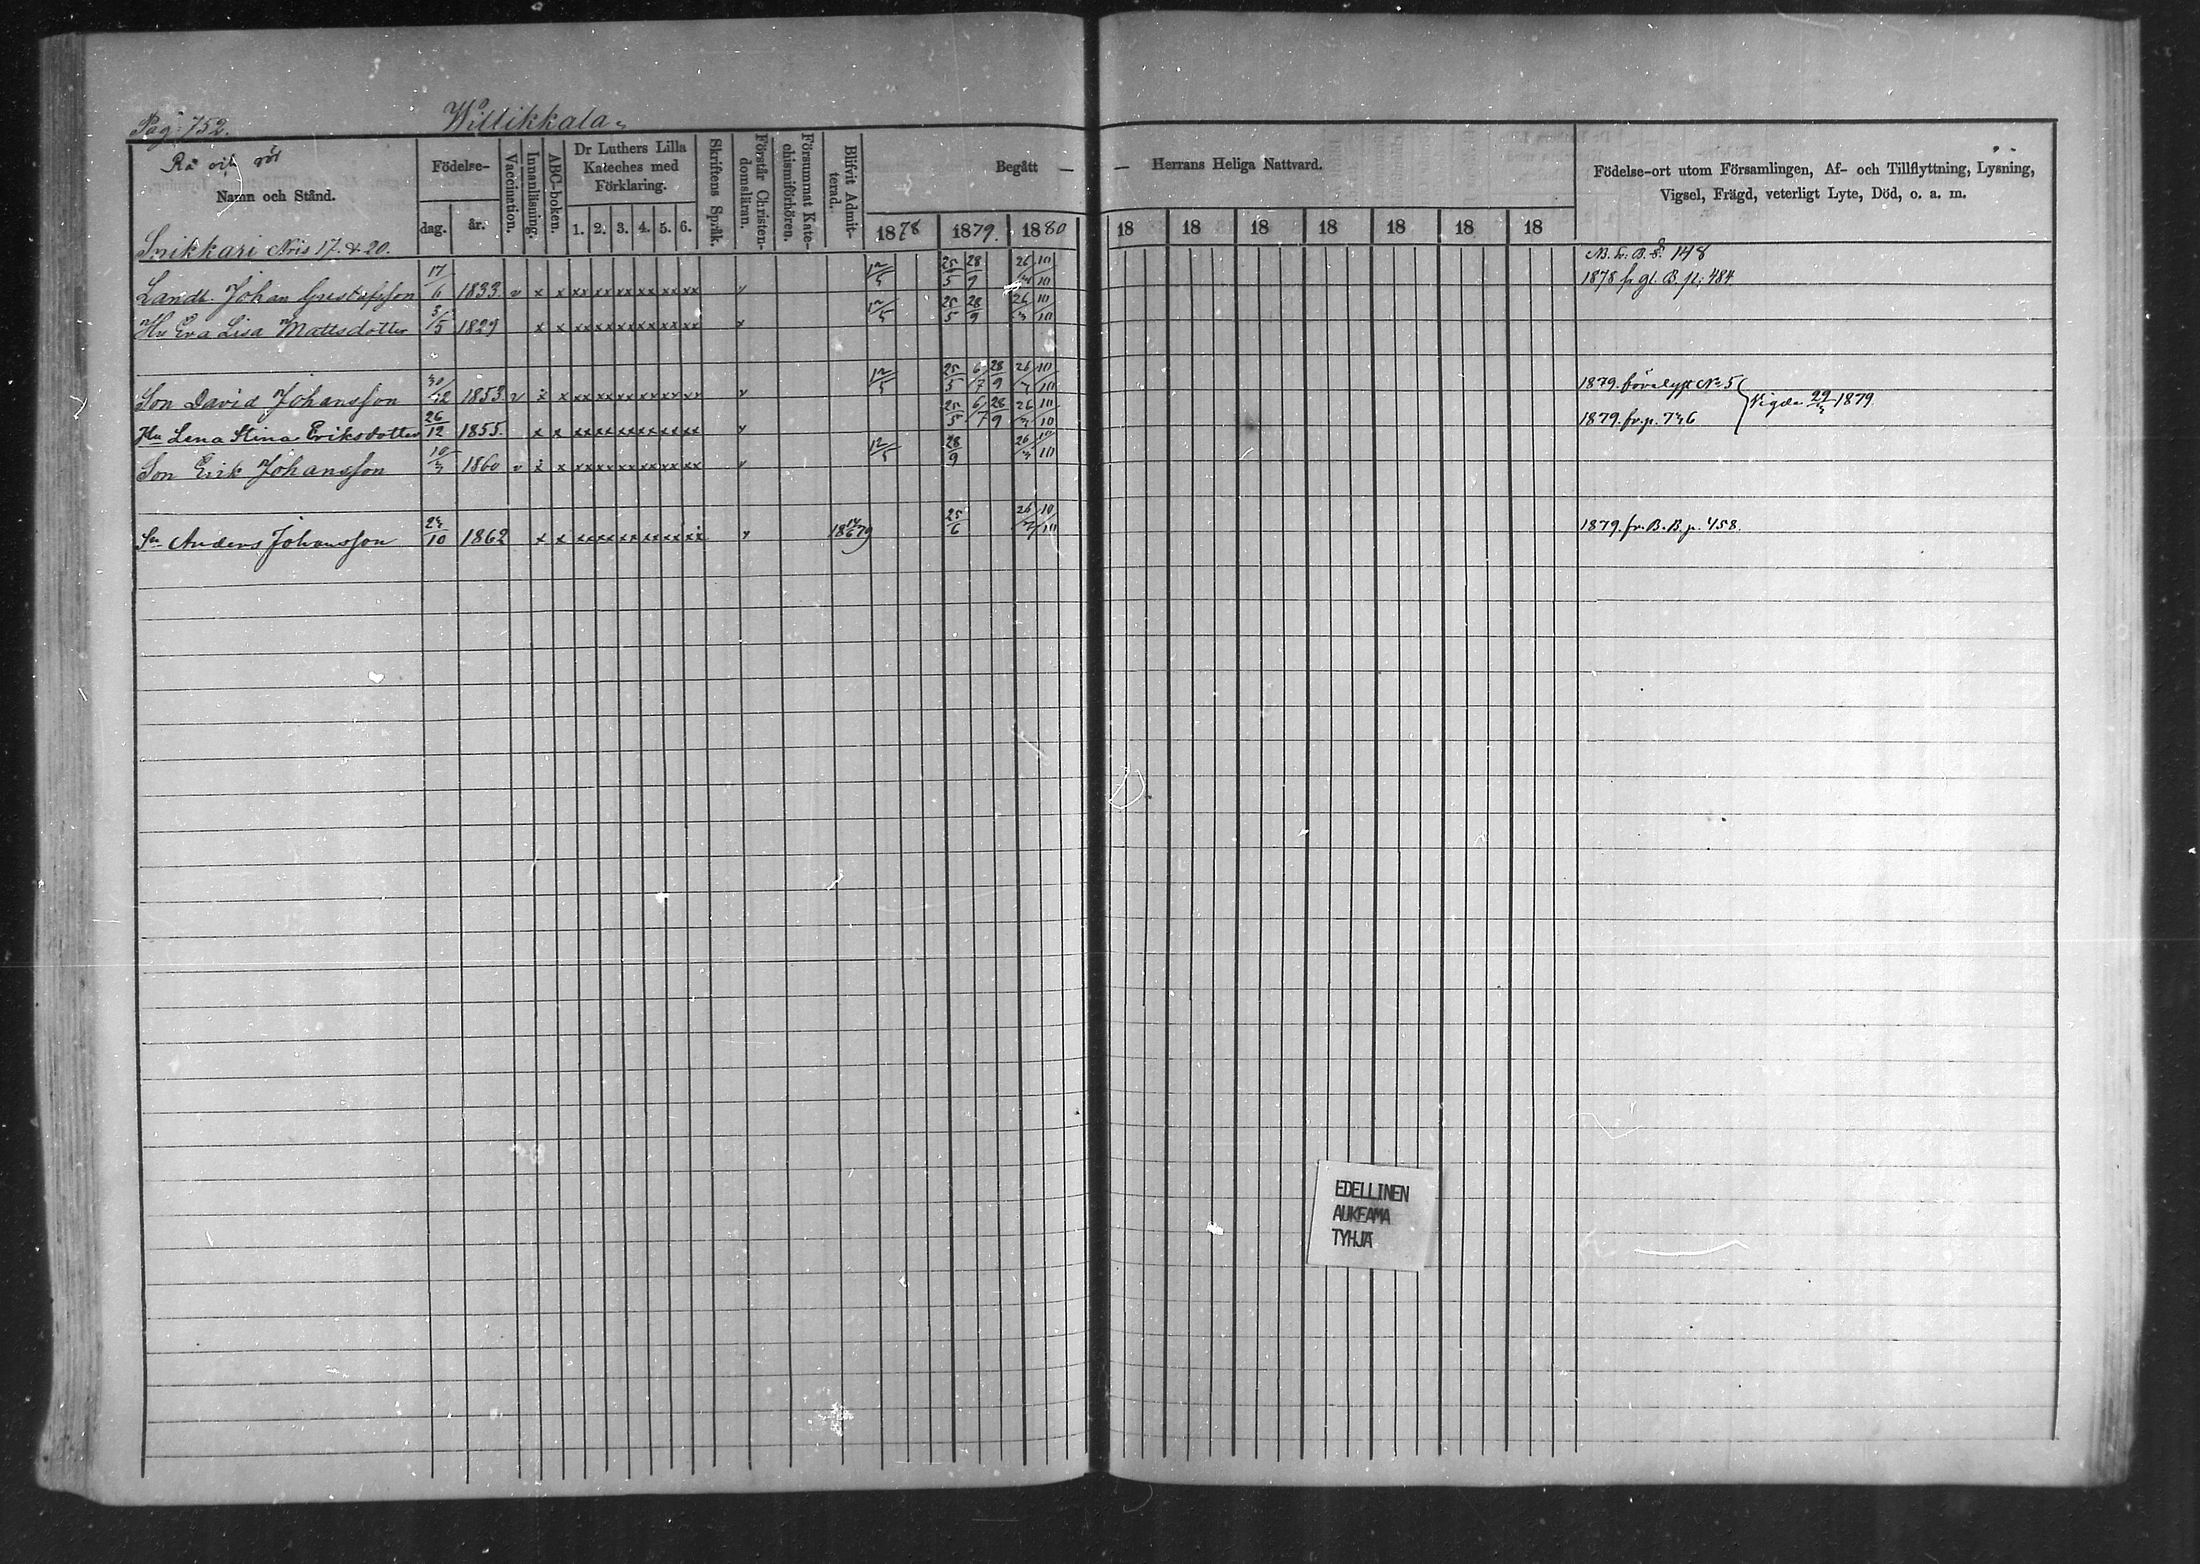 Pag. 752. Willikkala
Namn och Stånd.
Födelse-
dag. år.
Vaccination.
Innanläsning.
ABC-boken.
Dr Luthers Lilla
Kateches med
Förklaring.
1. 2. 3. 4. 5. 6.
Skriftens Språk.
Förstår Christen-
domsläran.
Försummat Kate-
chismiförhören.
Blifvit Admit-
terad.
Begått — — Herrans Heliga Nattvard.
1878 1879. 1880 18 18 18 18 18 18 18
Födelse-ort utom Församlingen, Af- och Tillflyttning, Lysning,
Vigsel, Frägd, veterligt Lyte, Död, o. a. m.
Snikkari Nris 17. & 20. 148
Landb. Johan Gustafsson 17/6 1833. v x x xx xx xx xx xx xx v 12/5 25/5 28/9 26/3 10/10 1878 fr gl. B. p: 484
Hu Eva Lisa Mattsdotter 3/5 1829 x x xx xx xx xx xx xx x 12/5 25/5 28/9 26/3 10/10
Son David Johansson 30/12 1853. v x x xx xx xx xx xx xx v 12/5 25/5 6/7 28/9 26/3 10/10 1879. No 5
Hu Lena Stina Eriksdotter 26/12 1855. x x xx xx xx xx xx xx v 25/5 6/7 28/9 26/3 10/10 1879. fr. p. 736 Vigde 29/3 1879.
Son Erik Johansson 10/3 1860 v x x xx xx xx xx xx xx v 12/5 28/9 26/3 10/10
Sn Anders Johansson 23/10 1862 x x xx xx xx xx xx xx v 25/6 1879. fr. B. B. p. 458.
EDELLINEN
AUKEAMA
TYHJÄ